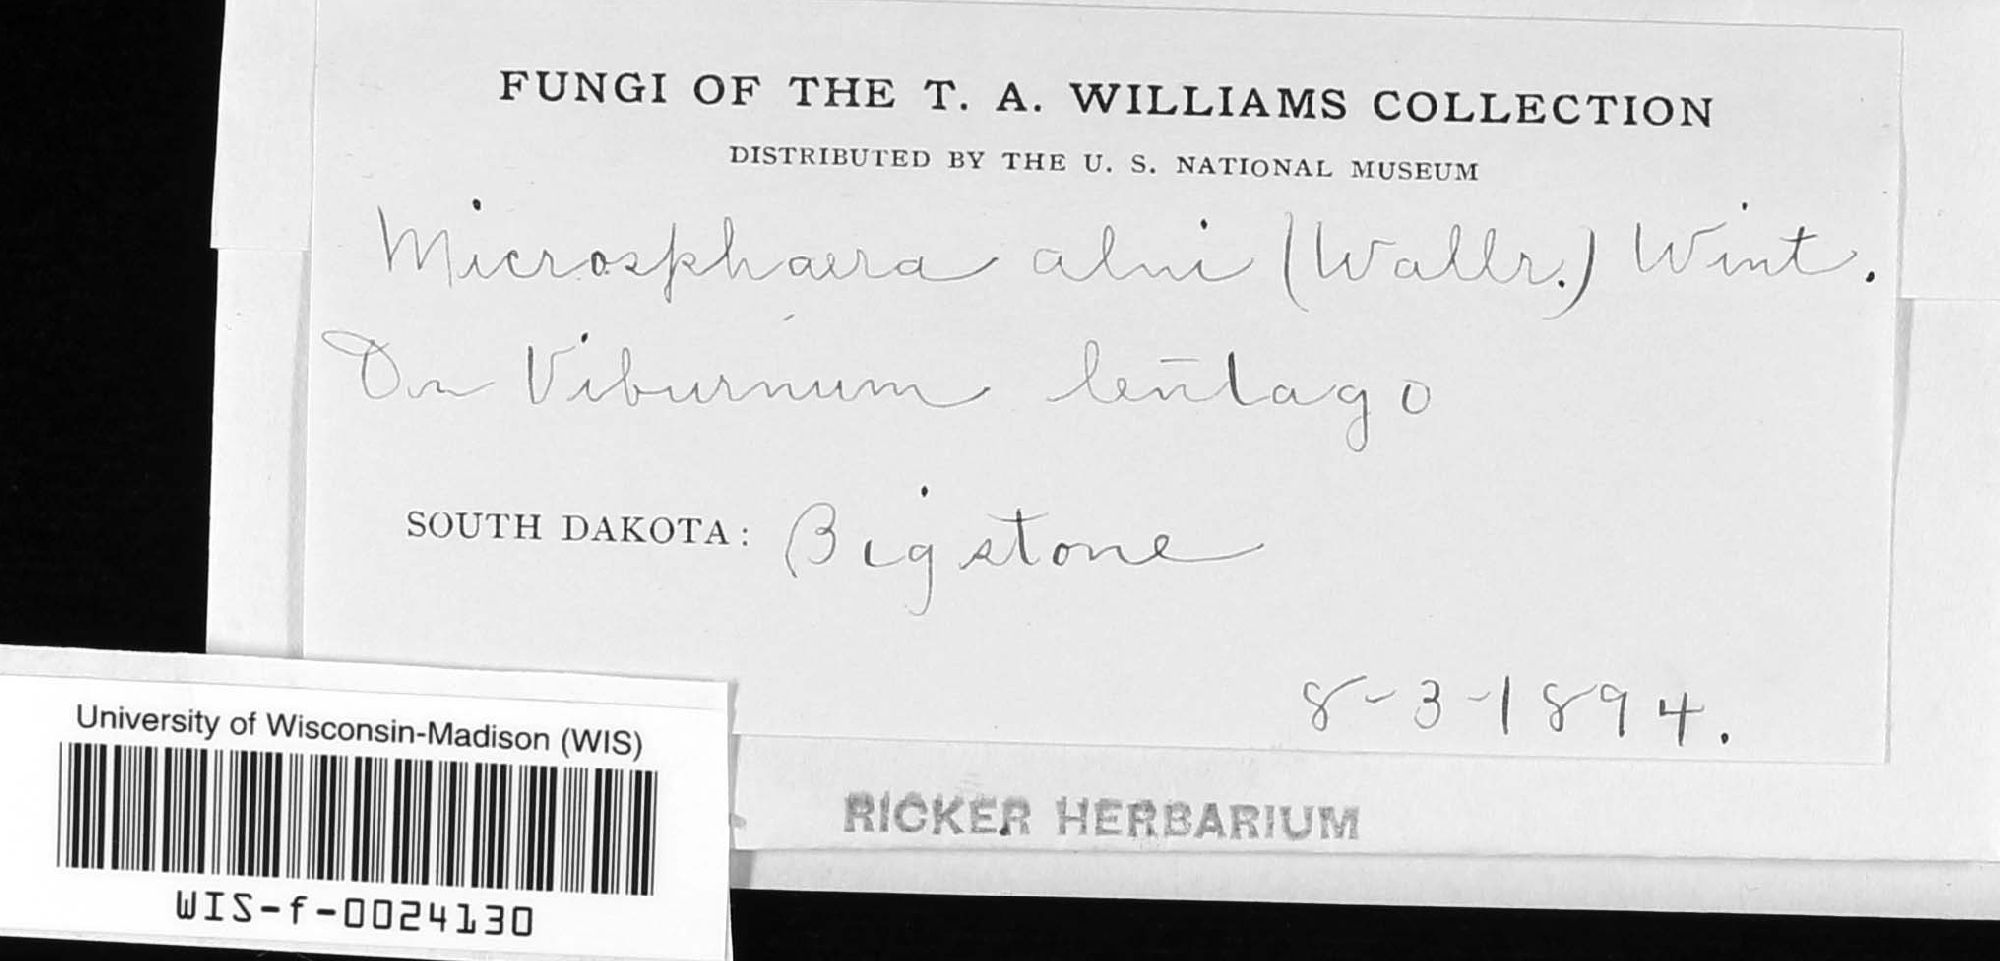 FUNGI OF THE T. A. WILLIAMS COLLECTION
DISTRIBUTED BY THE U. S. NATIONAL MUSEUM
Microsphaera alni (Wallr.) Wint.
On Viburnum lentago
SOUTH DAKOTA: Bigstone
8-3-1894.
RICKER HERBARIUM
University of Wisconsin-Madison (WIS)
WIS-f-0024130